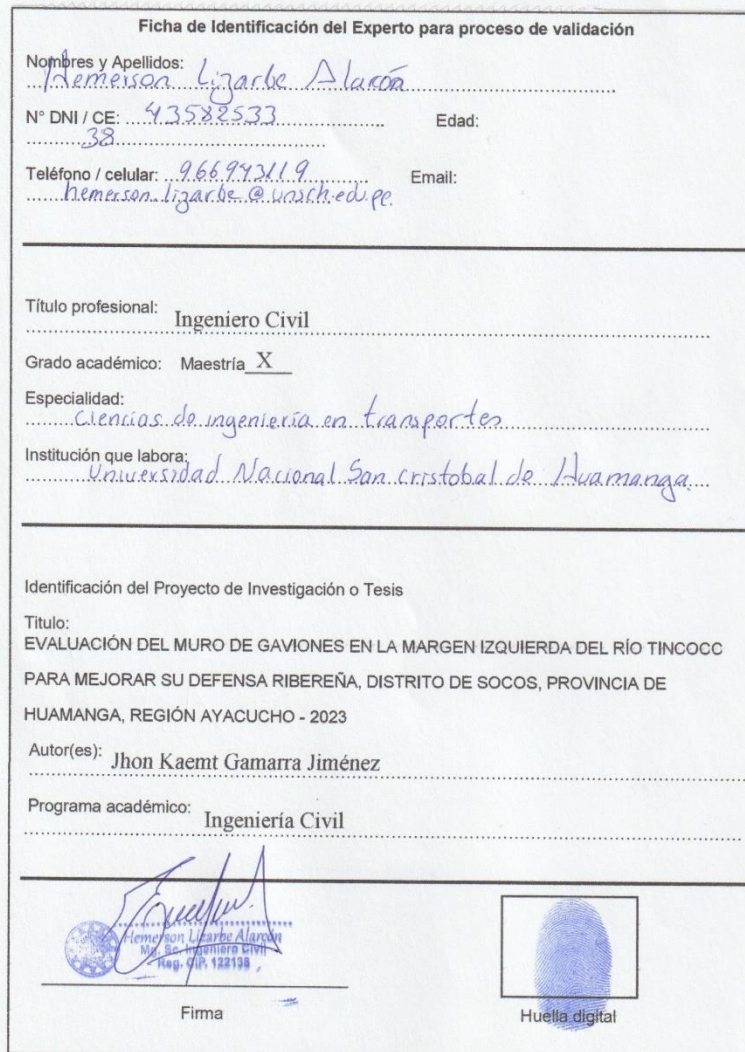 Ficha de Identificación del Experto para proceso de validación
Nombres y Apellidos:
Hemerson Lizarbe Alarcón
N° DNI / CE: 43582533 Edad:
38
Teléfono / celular: 966943119 Email:
hemerson.lizarbe@unsch.edu.pe
Título profesional: Ingeniero Civil
Grado académico: Maestría X
Especialidad:
Ciencias de ingeniería en transportes
Institución que labora:
Universidad Nacional San cristobal de Huamanga
Identificación del Proyecto de Investigación o Tesis
Titulo:
EVALUACIÓN DEL MURO DE GAVIONES EN LA MARGEN IZQUIERDA DEL RÍO TINCOCC
PARA MEJORAR SU DEFENSA RIBEREÑA, DISTRITO DE SOCOS, PROVINCIA DE
HUAMANGA, REGIÓN AYACUCHO - 2023
Autor(es): Jhon Kaemt Gamarra Jiménez
Programa académico: Ingeniería Civil
Hemerson Lizarbe Alarcón
Mg. Sc. Ingeniero Civil
Reg. CIP. 122138
Firma
Huella digital